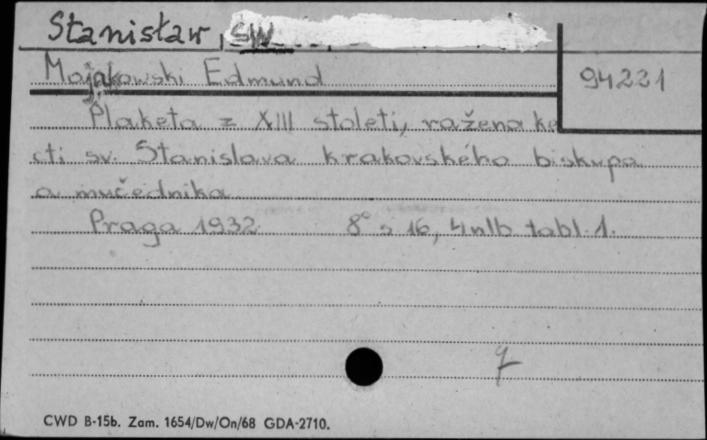 Stanisław, sw.
Majkowski Edmund
94221
Plaketa z XIII století, ražena ke
cti sv. Stanislava krakovského biskupa
a mučedníka
Praga 1932 8° s 16, 4nlb tabl. 1.
CWD B-15b. Zam. 1654/Dw/On/68 GDA-2710.